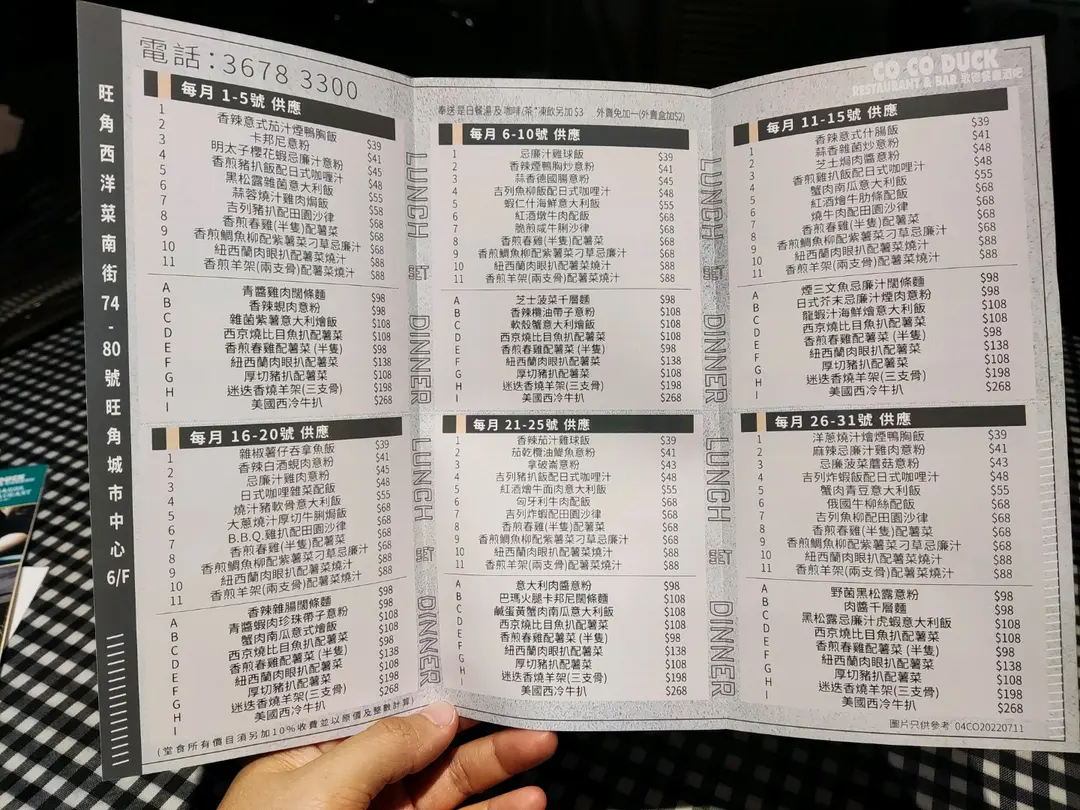 電話:3678 3300
CO CO DUCK
RESTAURANT & BAR
旺角西洋菜南街74-80號旺角城市中心6/F
每月 1-5號 供應
1 香辣意式茄汁煙鴨胸飯 $39
2 卡邦尼意粉 $41
3 明太子櫻花蝦忌廉汁意粉 $45
4 香煎豬扒飯配日式咖喱汁 $48
5 黑松露雜菌意大利飯 $55
6 蒜蓉燒汁雞肉焗飯 $58
7 吉列豬扒配田園沙律 $68
8 香煎春雞(半隻)配薯菜 $68
9 香煎鯛魚柳配紫薯菜刁草忌廉汁 $68
10 紐西蘭肉眼扒配薯菜燒汁 $88
11 香煎羊架(兩支骨)配薯菜燒汁 $88
A 青醬雞肉闊條麵 $98
B 香辣蜆肉意粉 $98
C 雜菌紫薯意大利燴飯 $108
D 西京燒比目魚扒配薯菜 $108
E 香煎春雞配薯菜 (半隻) $98
F 紐西蘭肉眼扒配薯菜 $138
G 厚切豬扒配薯菜 $108
H 迷迭香燒羊架(三支骨) $198
I 美國西冷牛扒 $268
LUNCH SET DINNER
奉送是日餐湯及咖啡/茶*凍飲另加$3 外賣免加一(外賣盒加$2)
每月 6-10號 供應
1 忌廉汁雞球飯 $39
2 香辣煙鴨胸炒意粉 $41
3 蒜香德國腸意粉 $45
4 吉列魚柳飯配日式咖喱汁 $48
5 蝦仁什海鮮意大利飯 $55
6 紅酒燉牛肉配飯 $68
7 脆煎咸牛脷沙律 $68
8 香煎春雞(半隻)配薯菜 $68
9 香煎鯛魚柳配紫薯菜刁草忌廉汁 $68
10 紐西蘭肉眼扒配薯菜燒汁 $88
11 香煎羊架(兩支骨)配薯菜燒汁 $88
A 芝士菠菜千層麵 $98
B 香辣欖油帶子意粉 $98
C 軟殼蟹意大利燴飯 $108
D 西京燒比目魚扒配薯菜 $108
E 香煎春雞配薯菜 (半隻) $98
F 紐西蘭肉眼扒配薯菜 $138
G 厚切豬扒配薯菜 $108
H 迷迭香燒羊架(三支骨) $198
I 美國西冷牛扒 $268
LUNCH SET DINNER
每月 11-15號 供應
1 香辣意式什腸飯 $39
2 蒜香雜菌炒意粉 $41
3 芝士焗肉醬意粉 $45
4 香煎雞扒飯配日式咖喱汁 $48
5 蟹肉南瓜意大利飯 $55
6 紅酒燴牛肋條配飯 $68
7 燒牛肉配田園沙律 $68
8 香煎春雞(半隻)配薯菜 $68
9 香煎鯛魚柳配紫薯菜刁草忌廉汁 $68
10 紐西蘭肉眼扒配薯菜燒汁 $88
11 香煎羊架(兩支骨)配薯菜燒汁 $88
A 煙三文魚忌廉汁闊條麵 $98
B 日式芥末忌廉汁煙肉意粉 $98
C 龍蝦汁海鮮燴意大利飯 $108
D 西京燒比目魚扒配薯菜 $108
E 香煎春雞配薯菜 (半隻) $98
F 紐西蘭肉眼扒配薯菜 $138
G 厚切豬扒配薯菜 $108
H 迷迭香燒羊架(三支骨) $198
I 美國西冷牛扒 $268
每月 16-20號 供應
1 雜椒薯仔吞拿魚飯 $39
2 香辣白酒蜆肉意粉 $41
3 忌廉汁雞肉意粉 $45
4 日式咖喱雜菜配飯 $48
5 燒汁豬軟骨意大利飯 $55
6 大蔥燒汁厚切牛脷焗飯 $68
7 B.B.Q.雞扒配田園沙律 $68
8 香煎春雞(半隻)配薯菜 $68
9 香煎鯛魚柳配紫薯菜刁草忌廉汁 $68
10 紐西蘭肉眼扒配薯菜燒汁 $88
11 香煎羊架(兩支骨)配薯菜燒汁 $88
A 香辣雜腸闊條麵 $98
B 青醬蝦肉珍珠帶子意粉 $98
C 蟹肉南瓜意式燴飯 $108
D 西京燒比目魚扒配薯菜 $108
E 香煎春雞配薯菜(半隻) $98
F 紐西蘭肉眼扒配薯菜 $138
G 厚切豬扒配薯菜 $108
H 迷迭香燒羊架(三支骨) $198
I 美國西冷牛扒 $268
(堂食所有價目須另加10%收費並以原價及整數計算)
LUNCH SET DINNER
每月 21-25號 供應
1 香辣茄汁雞球飯 $39
2 茄乾欖油鯷魚意粉 $41
3 拿破崙意粉 $43
4 吉列豬扒飯配日式咖喱汁 $48
5 紅酒燴牛面肉意大利飯 $55
6 匈牙利牛肉配飯 $68
7 吉列炸蝦配田園沙律 $68
8 香煎春雞(半隻)配薯菜 $68
9 香煎鯛魚柳配紫薯菜刁草忌廉汁 $68
10 紐西蘭肉眼扒配薯菜燒汁 $88
11 香煎羊架(兩支骨)配薯菜燒汁 $88
A 意大利肉醬意粉 $98
B 巴瑪火腿卡邦尼闊條麵 $98
C 鹹蛋黃蟹肉南瓜意大利飯 $108
D 西京燒比目魚扒配薯菜 $108
E 香煎春雞配薯菜 (半隻) $98
F 紐西蘭肉眼扒配薯菜 $138
G 厚切豬扒配薯菜 $108
H 迷迭香燒羊架(三支骨) $198
I 美國西冷牛扒 $268
LUNCH SET DINNER
每月 26-31號 供應
1 洋蔥燒汁燴煙鴨胸飯 $39
2 麻辣忌廉汁雞肉意粉 $41
3 忌廉菠菜蘑菇意粉 $43
4 吉列炸蝦飯配日式咖喱汁 $48
5 蟹肉青豆意大利飯 $55
6 俄國牛柳絲配飯 $68
7 吉列魚柳配田園沙律 $68
8 香煎春雞(半隻)配薯菜 $68
9 香煎鯛魚柳配紫薯菜刁草忌廉汁 $68
10 紐西蘭肉眼扒配薯菜燒汁 $88
11 香煎羊架(兩支骨)配薯菜燒汁 $88
A 野菌黑松露意粉 $98
B 肉醬千層麵 $98
C 黑松露忌廉汁虎蝦意大利飯 $108
D 西京燒比目魚扒配薯菜 $108
E 香煎春雞配薯菜 (半隻) $98
F 紐西蘭肉眼扒配薯菜 $138
G 厚切豬扒配薯菜 $108
H 迷迭香燒羊架(三支骨) $198
I 美國西冷牛扒 $268
圖片只供參考 04CO20220711